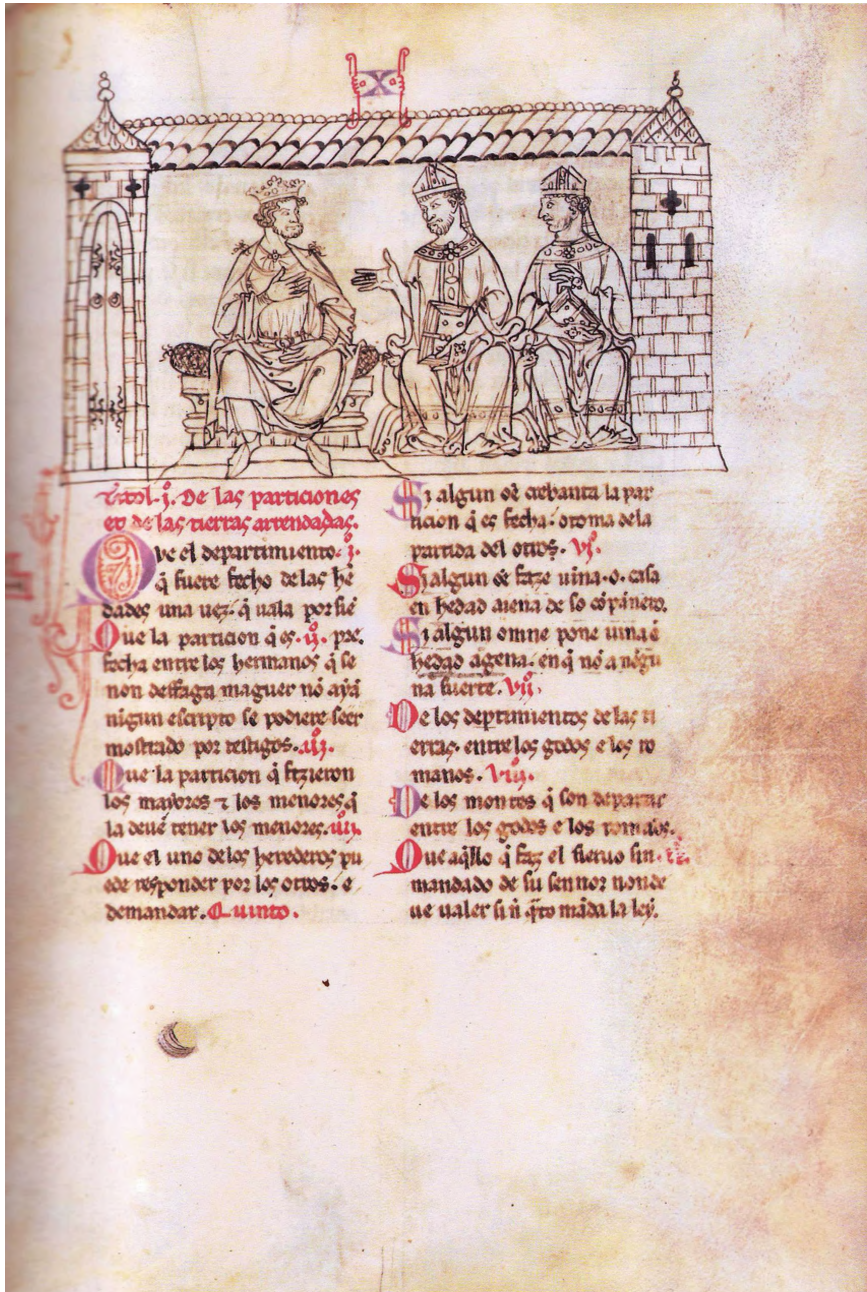 X
Titol. j. De las particiones
et de las tierras arrendadas.
Que el departimiento. j.
q̃ fuere fecho de las h̃e
dades una uez. q̃ uala por siẽ
Que la particion q̃ es. ij. pre.
fecha entre los hermanos q̃ se
non desfaga maguer nõ ayã
nigun escripto se podiere seer
mostrado por testigos. iij.
Que la particion q̃ fizieron
los mayores ⁊ los menores q̃
la deuẽ tener los menores. iiij.
Que el uno de los herederos pu
ede responder por los otros. e
demandar. Quinto.
Si algun oẽ crebanta la par
ticion q̃ es fecha. o toma de la
partida del otros. vj.
Si algun oẽ faze uina. o. casa
en hedad aiena de so cõpãnero.
Si algun omne pone uina ẽ
hedad agena. en q̃ nõ a nĩgu
na suerte. vij.
De los deptimientos de las ti
erras. entre los godos e los ro
manos. viij.
De los montes q̃ son departir
entre los godos e los romãos.
Que aq̃llo q̃ faz el sieruo sin.
mandado de su sennor non de
ue ualer si nõ q̃to mãda la ley.